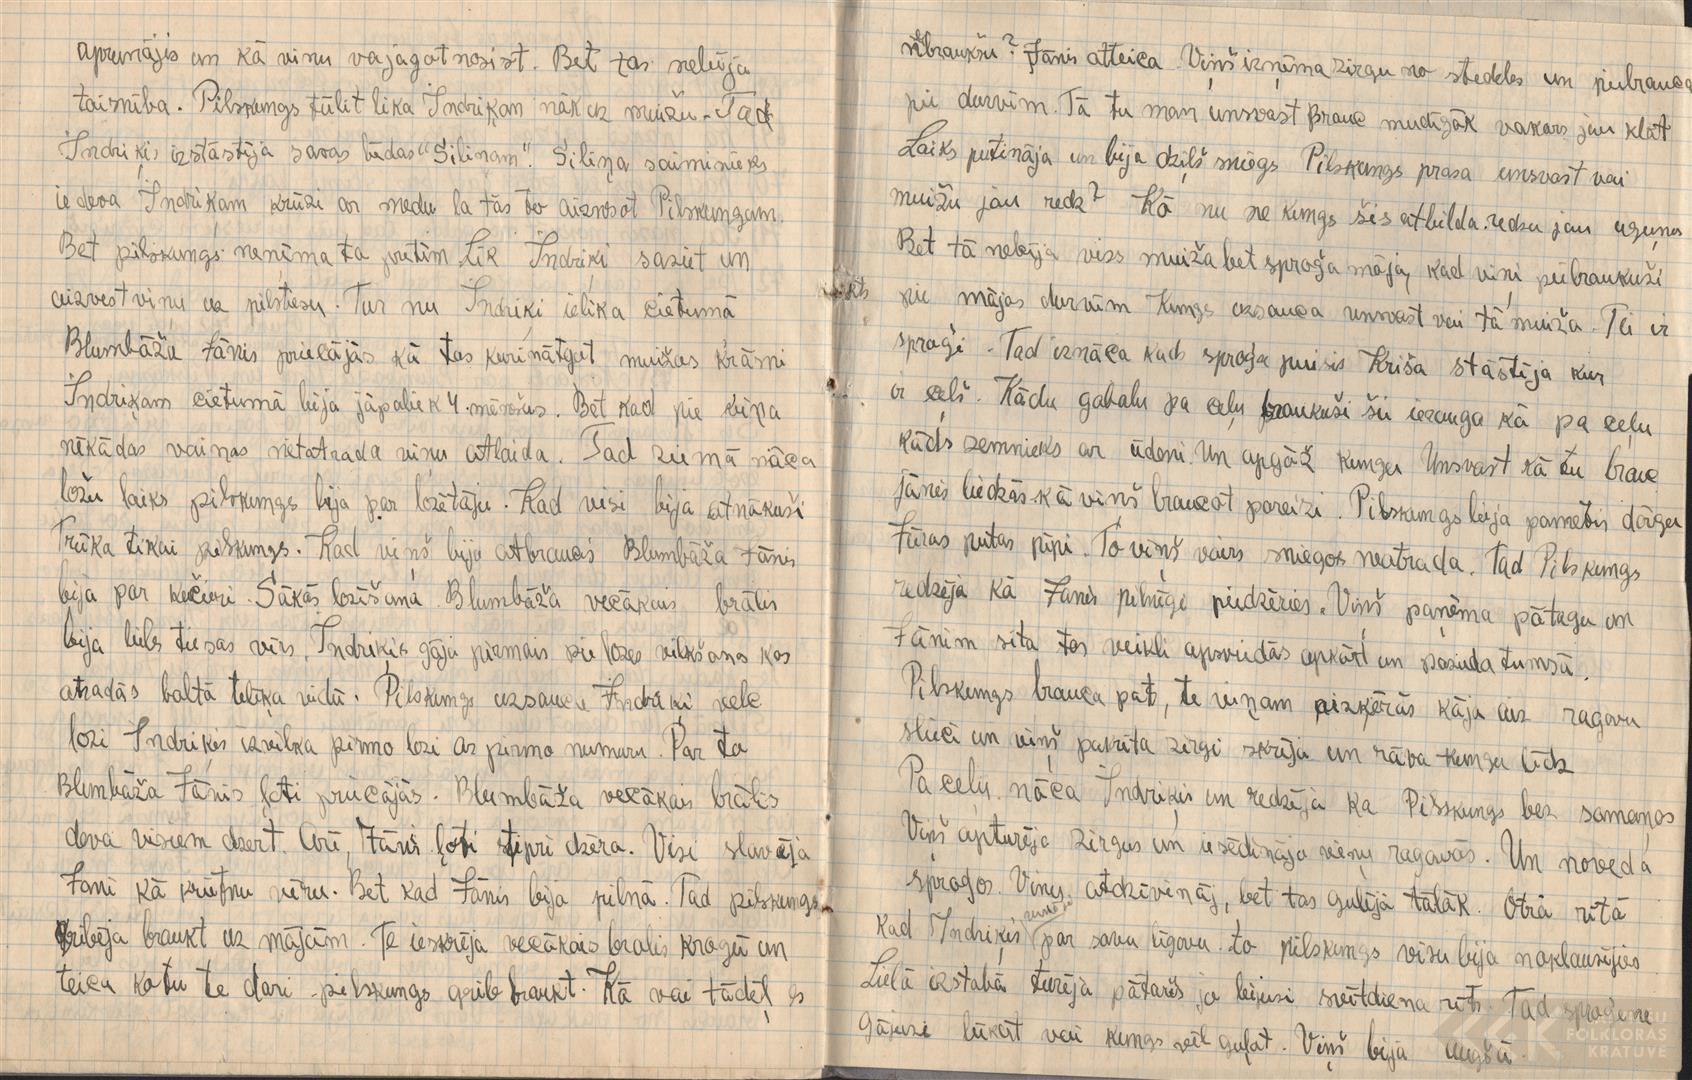 aprunājis un kā viņu vajagot nosist. Bet tas nebija
taisnība. Pilskungs tūlit lika Indriķam nāk uz muižu. Tad
Indriķis izstāstīja savas bēdas "Siliņam". Siliņa saiminieks
iedeva Indriķam krūzi ar medu la tas to aiznesot Pilskungam.
Bet pilskungs nenēma ta pretim lik Indriķi saziet un
aizvest vinu uz pilstiesu. Tur nu Indriķi ielika cietumā
Blumbāža Jānis priecājās kā tas kurinātgat muižas krāsni
Indriķam cietumā bija jāpaliek 4 mēnešus. Bet kad pie viņa
nēkādas vainas netatrada viņu atlaida. Tad ziemā nāca
ložu laiks pilskungs bija par lozētāju. Kad visi bija atnākuši
Trūka tikai pilskungs. Kad viņš bija atbraucis Blumbāža Jānis
bija par kučieri. Sākās lozēšana. Blumbāža vecākais brālis
bija liels tiesas vīrs. Indriķis gāja pirmais pie lozes vilkšanas kas
atradās baltā telēķa vidū. Pilskungs uzsauca Indriķi velc
lozi Indriķis izvilka pirmo lozi ar pirmo numuru. Par to
Blumbāža Jānis ļoti priecājās. Blumbāža vecākais brālis
deva visiem dzert. Arī Jānis ļoti stipri dzēra. Visi slavēja
Jāni kā krietnu vīru. Bet kad Jānis bija pilnā. Tad pilskungs
gribēja braukt uz mājām. Te ieskrēja vecākais bralis krogū un
teica ko tu te dari pilskungs grib braukt. Kā vai tādēļ es
nebraukšu? Jānis atteica. Viņš izņēma zirgu no stedeles un piebrauca
pie durvim. Tā tu man unsvast Brauc mudīgāk vakars jau klāt
Laiks putināja un bija dziļš sniegs Pilskungs prasa unsvast vai
muižu jau redz? Kā nu ne kungs šis atbilda. redzu jau uguņus
Bet tā nebija viss muiža bet sproģa mājaj kad viņi piebraukuši
pie mājas durvim kungs uzsauca unsvast vai tā muiža. Tie ir
sproģi. Tad iznāca kads sproģa puisis Kriša stāstija kur
ir ceļš. Kādu gabalu pa ceļu braukuši šie ierauga kā pa ceļu
kāds zemnieks ar ūdeni. Un apgāž kungu Unsvast kā tu brauc
jānis liedzās kā viņš braucot pareizi. Pilskungs bija pametis dārgu
Jūras putas pīpi. To viņš vairs sniegos neatrada. Tad Pilskungs
redzēja kā Jānis pilnīgi piedzēries. Viņš paņēma pātagu un
Jānim sita tas veikli apsviedās apkārt un pazuda tumsā.
Pilskungs brauca pats, te viņam aizķērās kāja aiz ragavu
slieci un viņš pakrita zirgi skrēja un rāva kungu līdz
Pa ceļu nāca Indriķis un redzēja ka Pilskungs bez samaņas
Viņš apturēja zirgus un iesēdināja viņu ragavās. Un noveda
sproģos. Viņus atdzīvināj, bet tas gulēja tālāk. Otrā rītā
kad Indriķis par savu līgavu to pilskungs visu bija noklausījies
Lielā izstabā turēja pātarūs jo bijusi svētdiena rīts. Tad sproģene
Gājusi lūkāt vai kungs vēl guļot. Viņš bija augšā.
FOLKLORAS
KRATUVE